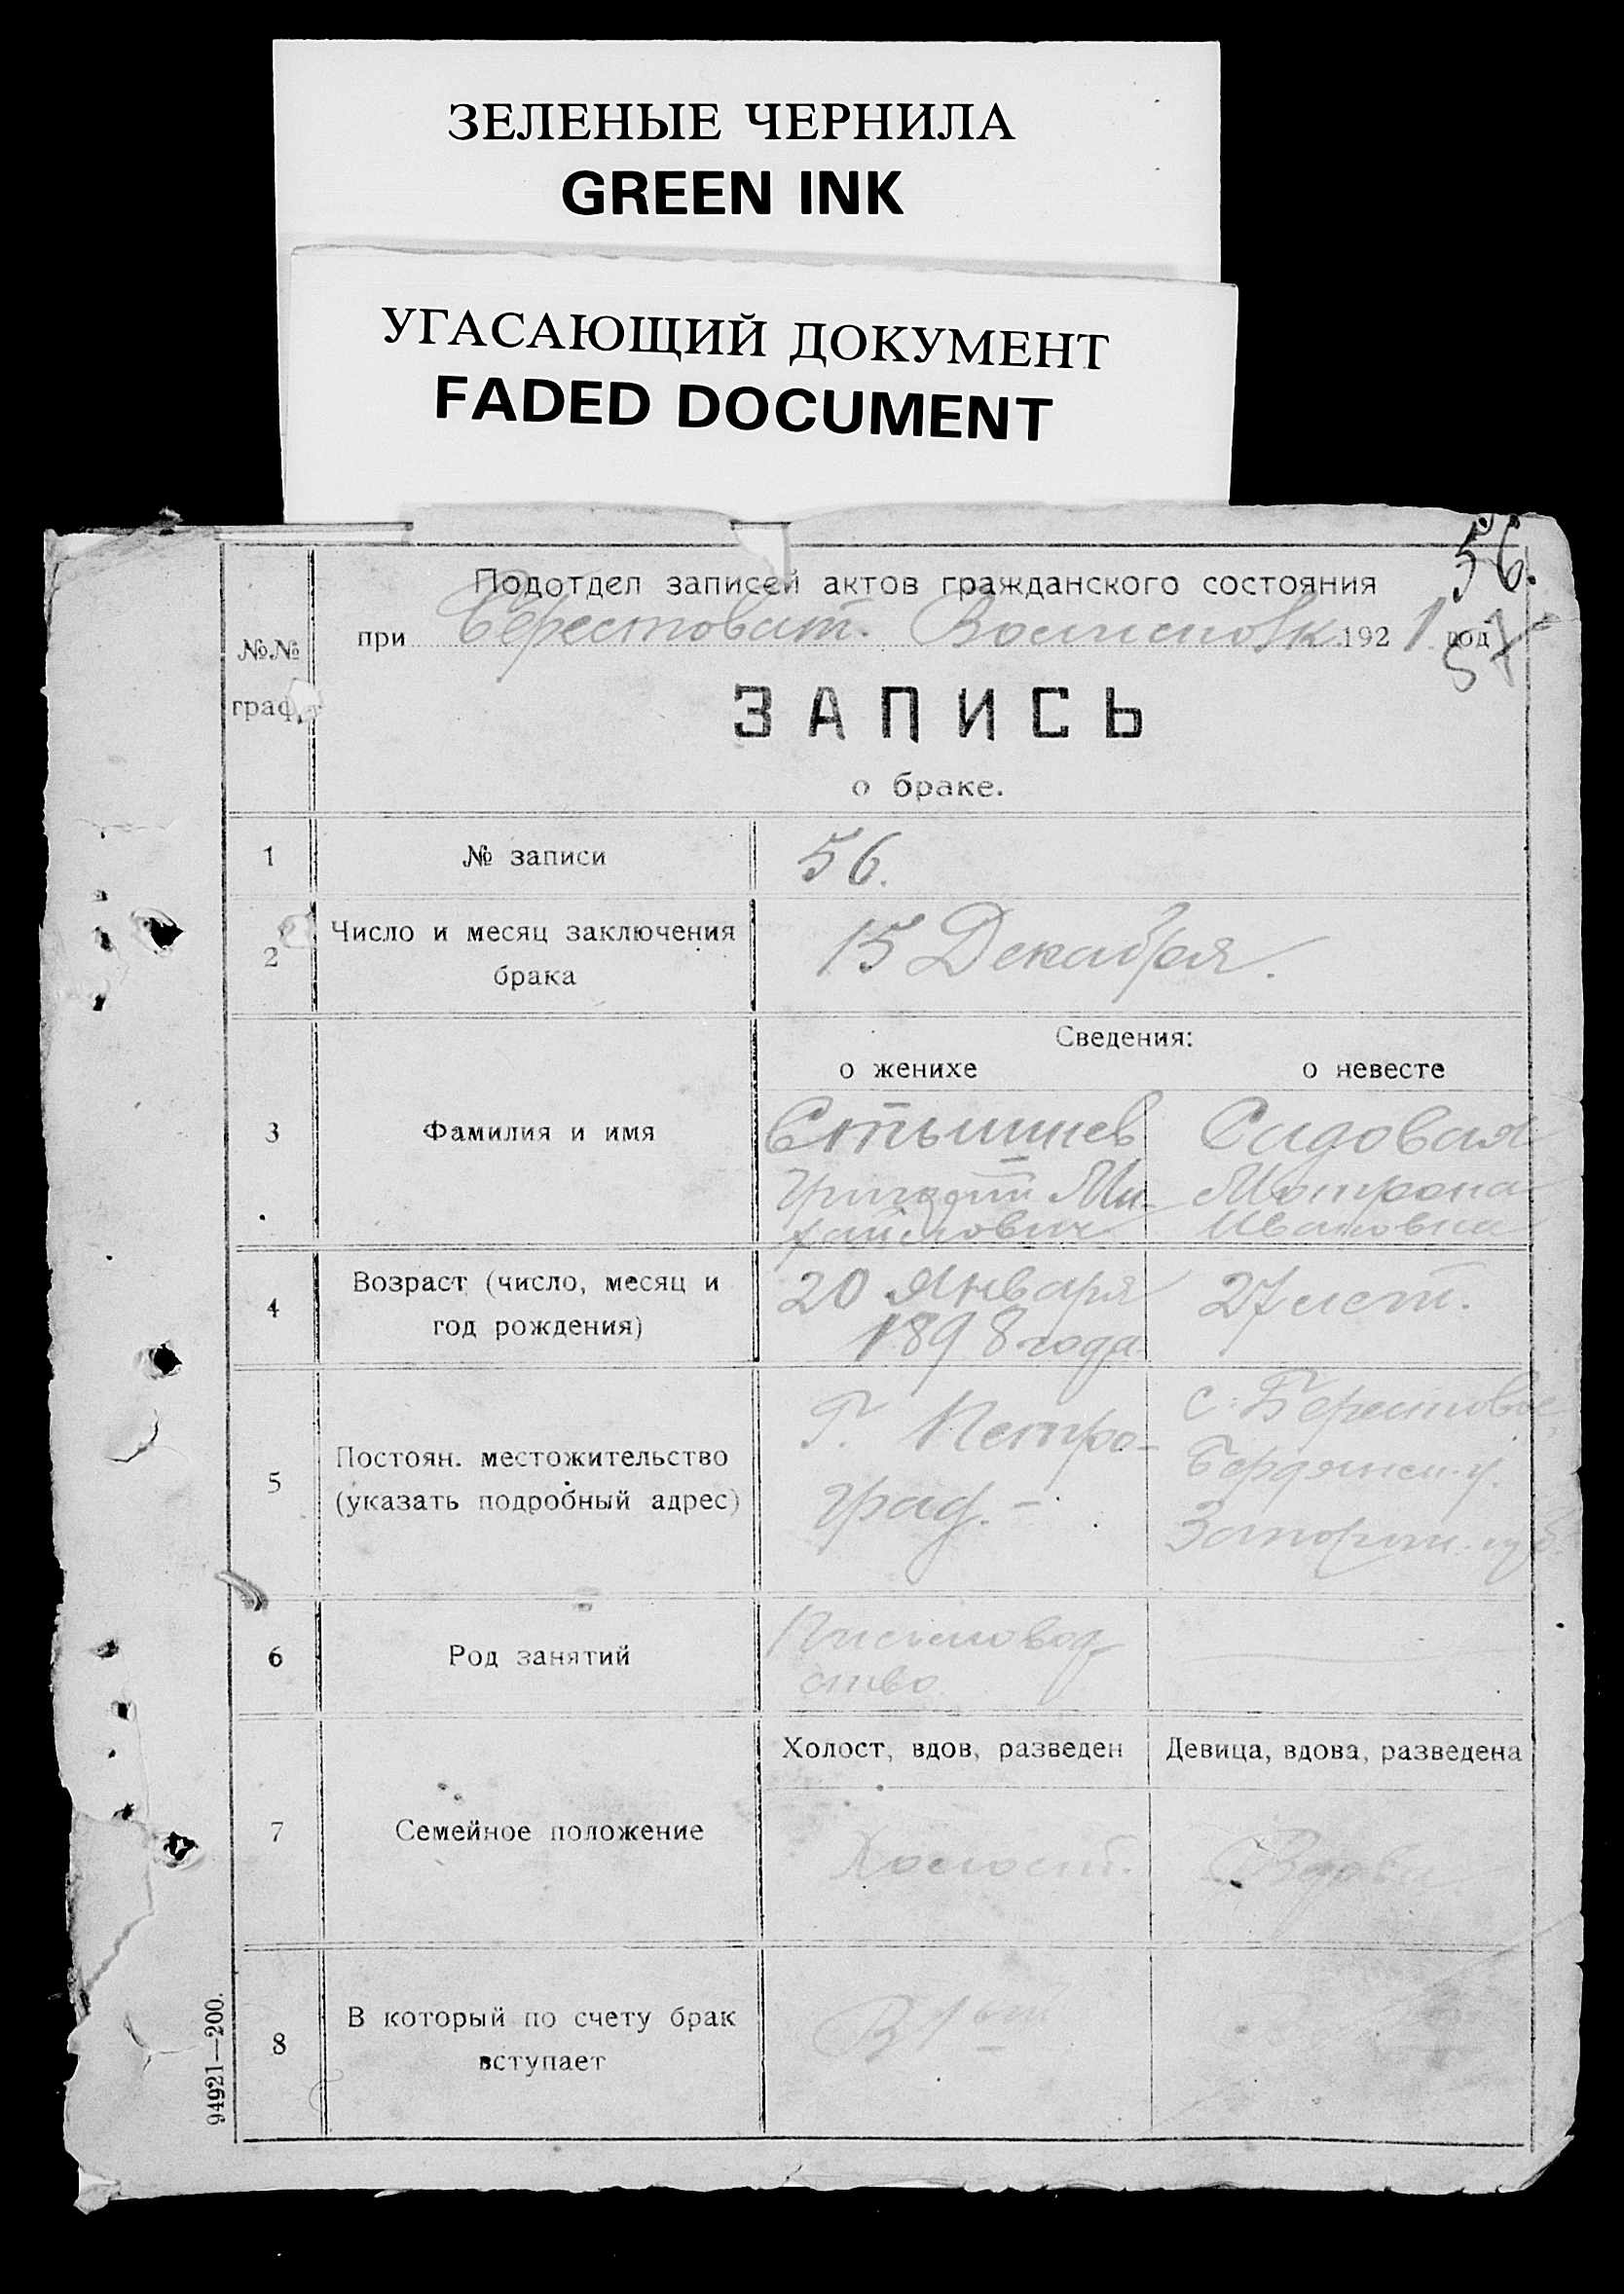 ЗЕЛЕНЫЕ ЧЕРНИЛА
GREEN INK
УГАСАЮЩИЙ ДОКУМЕНТ
FADED DOCUMENT
56.
Подотдел записей актов гражданского состояния
при Берестоват. 192 1 год
57
№№
граф.
ЗАПИСЬ
о браке.
1 № записи 56.
2 Число и месяц заключения
брака
15 Декабря.
Сведения:
о женихе о невесте
3 Фамилия и имя
Садовая
Григорий Ми- Мотрона
хайлович Ивановна
4 Возраст (число, месяц и
год рождения)
20 Января 27 лет.
1898 года
5 Постоян. местожительство
(указать подробный адрес)
Г. Петро- с. Берестовое
град. Бердянск. у.
Запорож. губ.
6 Род занятий
Письмовод
ство.
7 Семейное положение
Холост, вдов, разведен Девица, вдова, разведена
Холост. Вдова
8 В который по счету брак
вступает
В 1ый
94921—200.